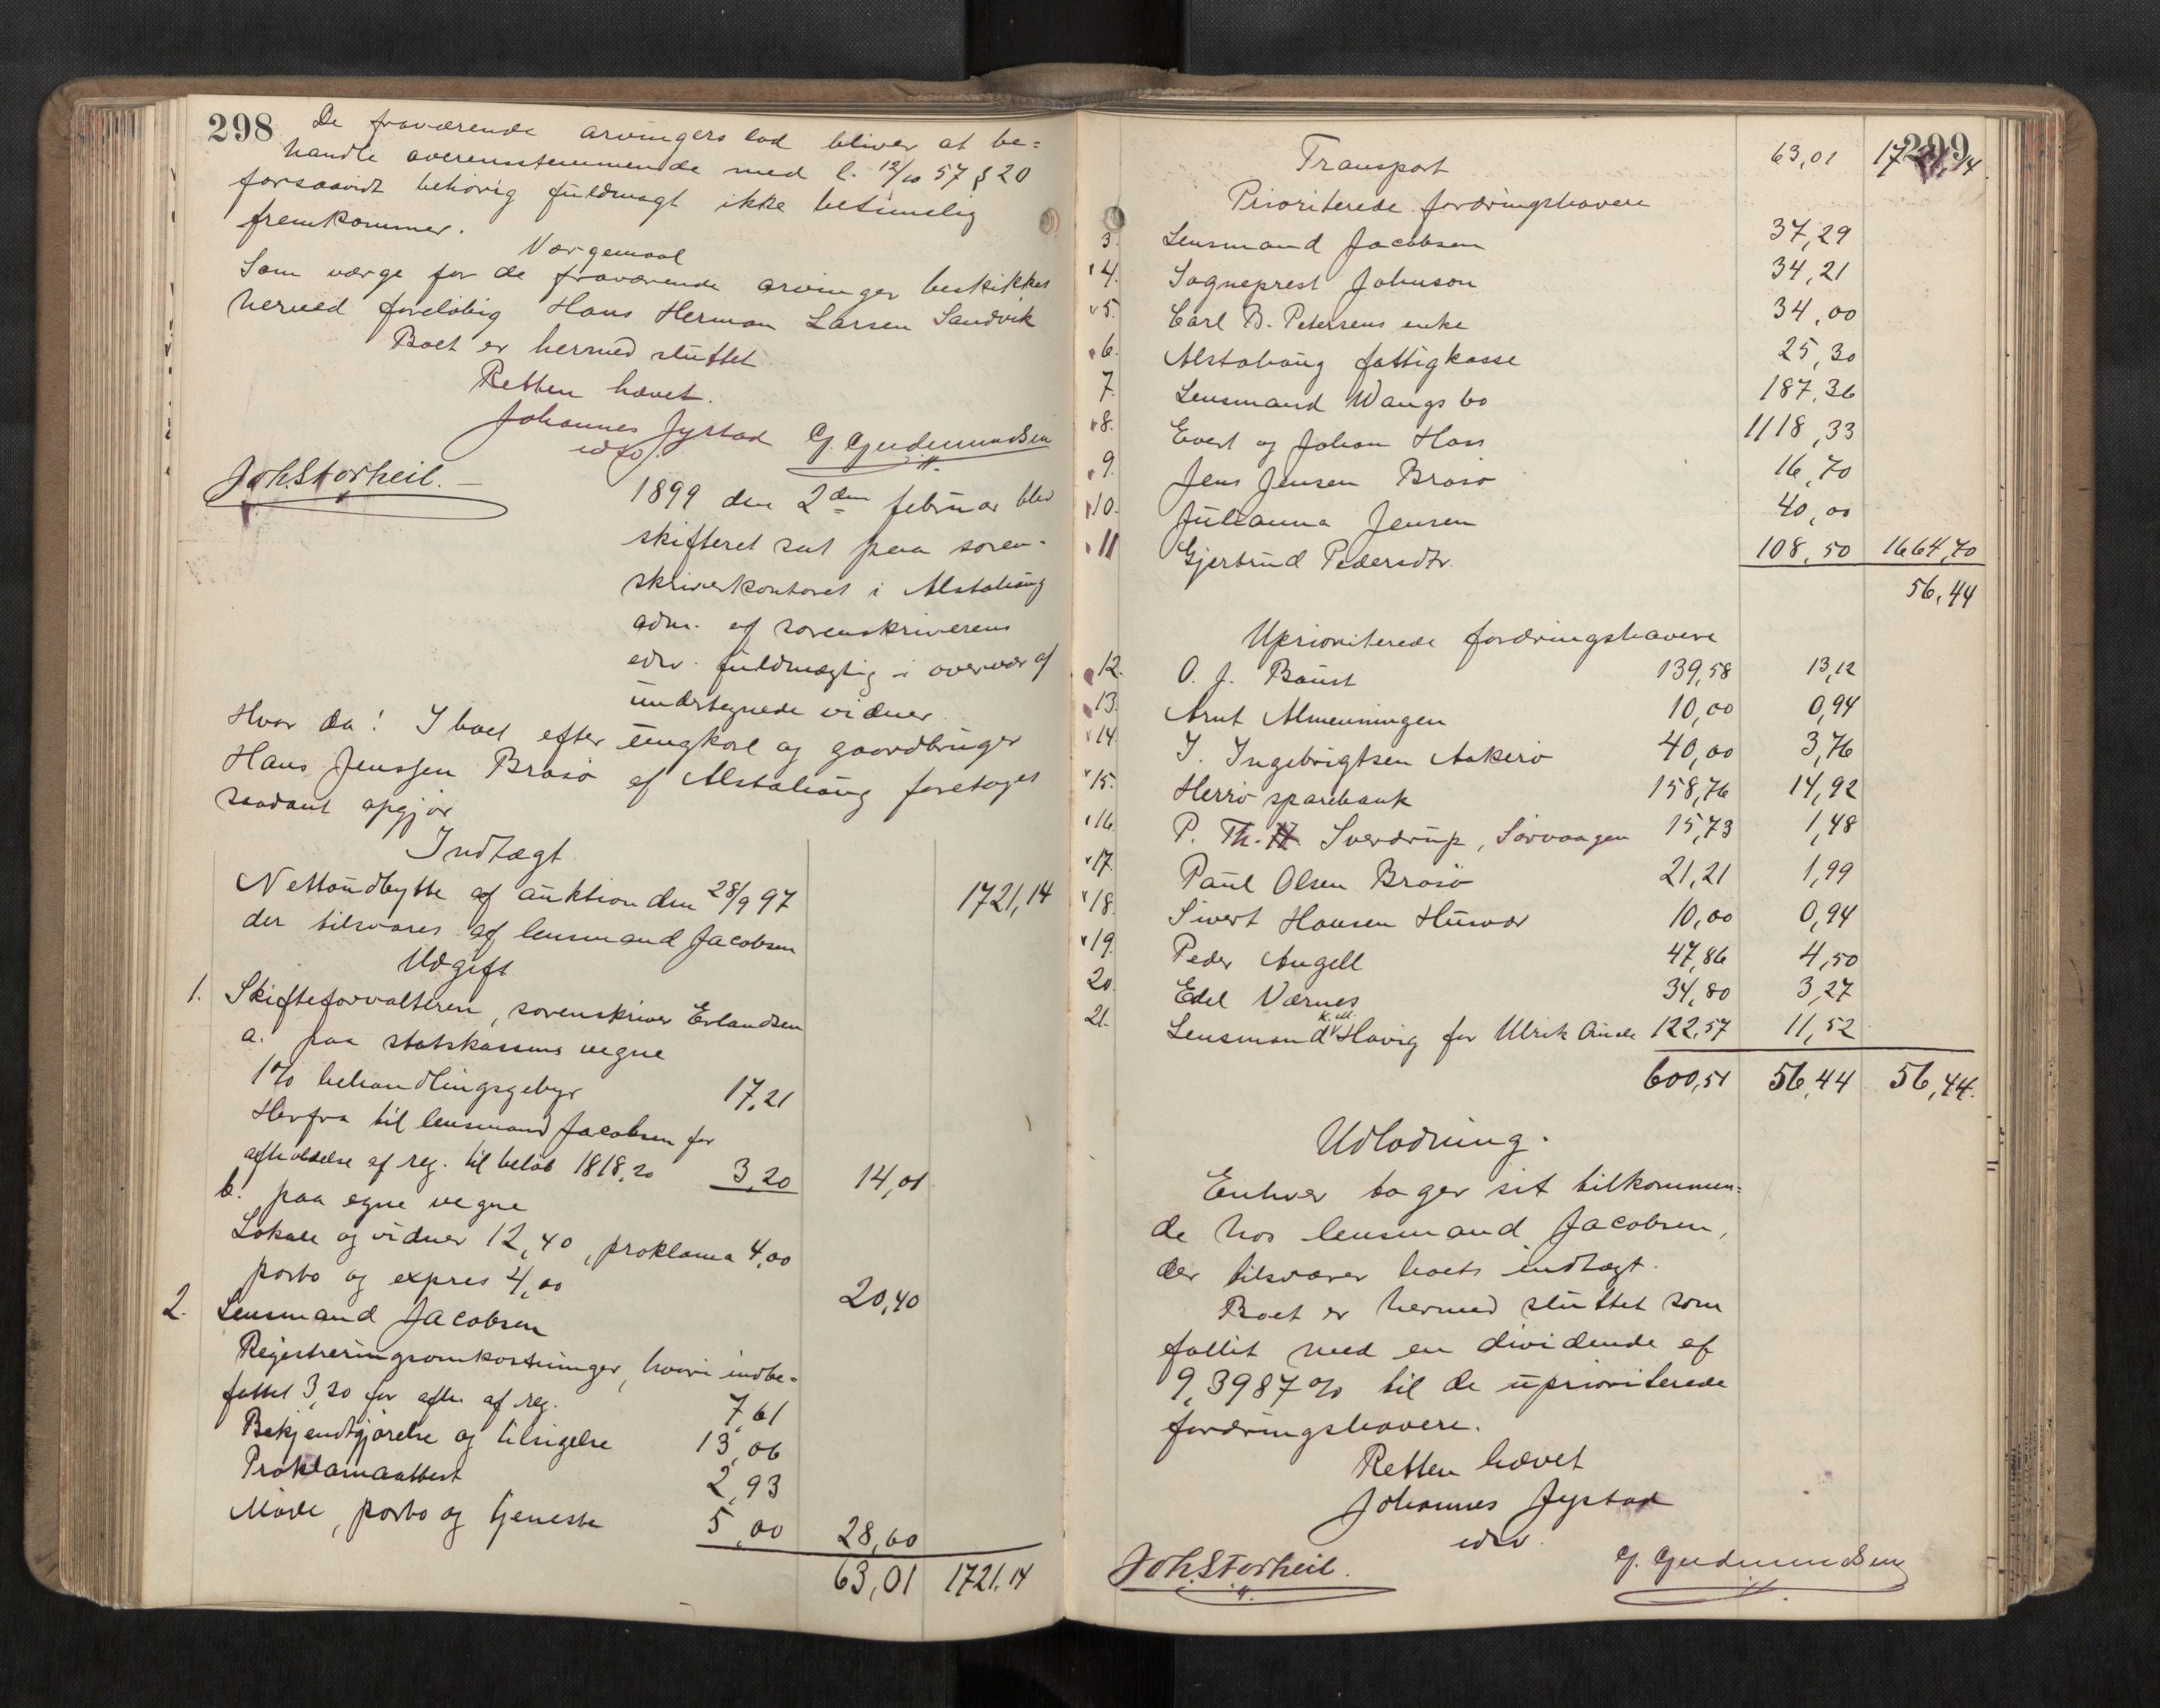 298
De fraværende arvingers lod bliver at be=
handle overensstemmende med l. 12/10 57 § 20
forsaavidt behörig fuldmagt ikke betimelig
fremkommer.
Værgemaal
Som værge for de fraværende arvinger beskikkes
herved foreløbig Hans Herman Larsen Sandvik
Boet er hermed sluttet
Retten hævet.
Johannes Jystad G. Gudmundsen
edsv.
Joh. Storheil.
1899 den 2den februar blev
skifteret sat paa soren-
skriverkontoret i Alstahaug
adm. af sorenskriverens
edsv. fuldmægtig i overvær af
undertegnede vidner
Hvor da! I boet efter ungkarl og gaardbruger
Hans Jenssen Brasö af Alstahaug foretoges
saadant opgjör
Indtægt
Nettoudbytte af auktion den 28/9 97
der tilsvares af lensmand Jacobsen 1721,14
Udgift
1. Skifteforvalteren, sorenskriver Erlandsen
a. paa statskassens vegne
1% behandlingsgebyr 17,21
Herfra til lensmand Jacobsen for
afholdelse af reg. til beløb 1818,20 3,20 14,01
b. paa egne vegne
Lokale og vidner 12,40, proklama 4,00
porto og expres 4,00 20,40
2. Lensmand Jacobsen
Registreringsomkostninger, hvori indbe-
fattet 3,20 for afh. af reg. 7,61
Bekjendtgjörelse og tilsigelse 13,06
Proklamaattest 2,93
Möde, porto og tjeneste 5,00 28,60
63,01 1721,14
299
Transport 63,01 1721,14
Prioriterede fordringshavere
3. Lensmand Jacobsen 37,29
4. Sogneprest Johnson 34,21
5. Carl B. Petersens enke 34,00
6. Alstahaug fattigkasse 25,30
7. Lensmand Wangsbo 187,36
8. Evert og Johan Hass 1118,33
9. Jens Jensen Brasö 16,70
10. Julianna Jensen 40,00
11 Gjertrud Pedersdtr. 108,50 1664,70
56,44
Uprioriterede fordringshavere
12. O. J. Baust 139,58 13,12
13. Arnt Almenningen 10,00 0,94
14. I. Ingebrigtsen Aakerö 40,00 3,76
15. Herrö sparebank 158,76 14,92
16. P. Th. Sverdrup, Sörvaagen 15,73 1,48
17. Paul Olsen Brasö 21,21 1,99
18. Sivert Hansen Husvær 10,00 0,94
19. Peder Angell 47,86 4,50
20. Edel Værnes 34,80 3,27
21. Lensmand Havig for Ulrik 122,57 11,52
600,51 56,44 56,44.
Udlodning.
Enhver tager sit tilkommen=
de hos lensmand Jacobsen,
der tilsvarer boets indtægt.
Boet er hermed sluttet som
fallit med en dividende af
9,3987% til de uprioriterede
fordringshavere.
Retten hævet
Johannes Jystad
edsv.
Joh. Storheil. G. Gudmundsen